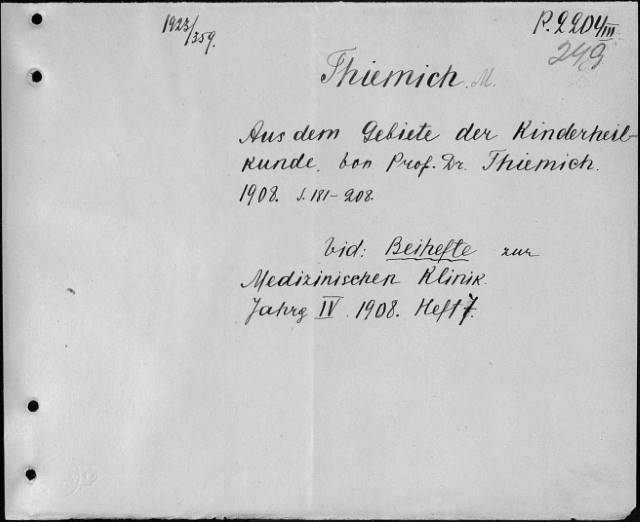 1923/359.
P.2204/III
249
Thiemich. M.
Aus dem Gebiete der Kinderheil-
kunde. von Prof. Dr. Thiemich.
1908. S. 181-208.
Vid: Beihefte zur
Medizinischen Klinik.
Jahrg IV. 1908. Heft 7.